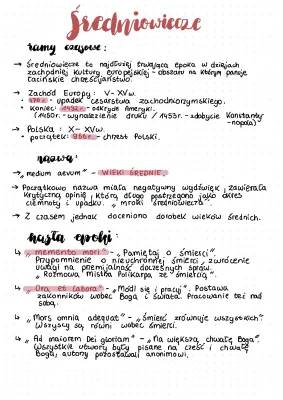 Średniowiecze
ramy czasowe:
→ Średniowiecze to najdłużej trwająca epoka w dziejach
zachodniej kultury europejskiej - obszaru na którym panuje
łacińskie chrześcijaństwo.
→ Zachód Europy: V - XV w.
• 476 r. - upadek cesarstwa zachodniorzymskiego.
• Koniec: 1492 r. - odkrycie Ameryki.
(1450 r. - wynalezienie druku / 1453 r. - zdobycie Konstanty-
-nopola)
→ Polska: X - XV w.
• początek: 966 r. - chrzest Polski.
nazwa:
→ „medium aevum" - WIEKI ŚREDNIE,
→ Początkowo nazwa miała negatywny wydźwięk, zawierała
krytyczną opinię, którą długo postrzegano jako okres
ciemnoty i upadku. „mroki średniowiecza".
→ Z czasem jednak doceniono dorobek wieków średnich.
hasła epoki:
↳ „memento mori" - „Pamiętaj o śmierci".
Przypomnienie o nieuchronnej śmierci, zwrócenie
uwagi na przemijalność doczesnych spraw.
„Rozmowa mistrza Polikarpa ze śmiercią".
↳ „Ora et labora" - „Módl się i pracuj". Postawa
zakonników wobec Boga i świata. Pracowanie też nad
sobą.
↳ „Mors omnia adequat" - „Śmierć zrównuje wszystkich".
Wszyscy są równi wobec śmierci.
↳ „Ad maiorem Dei gloriam" - „Na większą chwałę Boga".
Wszystkie utwory były pisane na cześć i chwałę
Boga, autorzy pozostawali anonimowi.